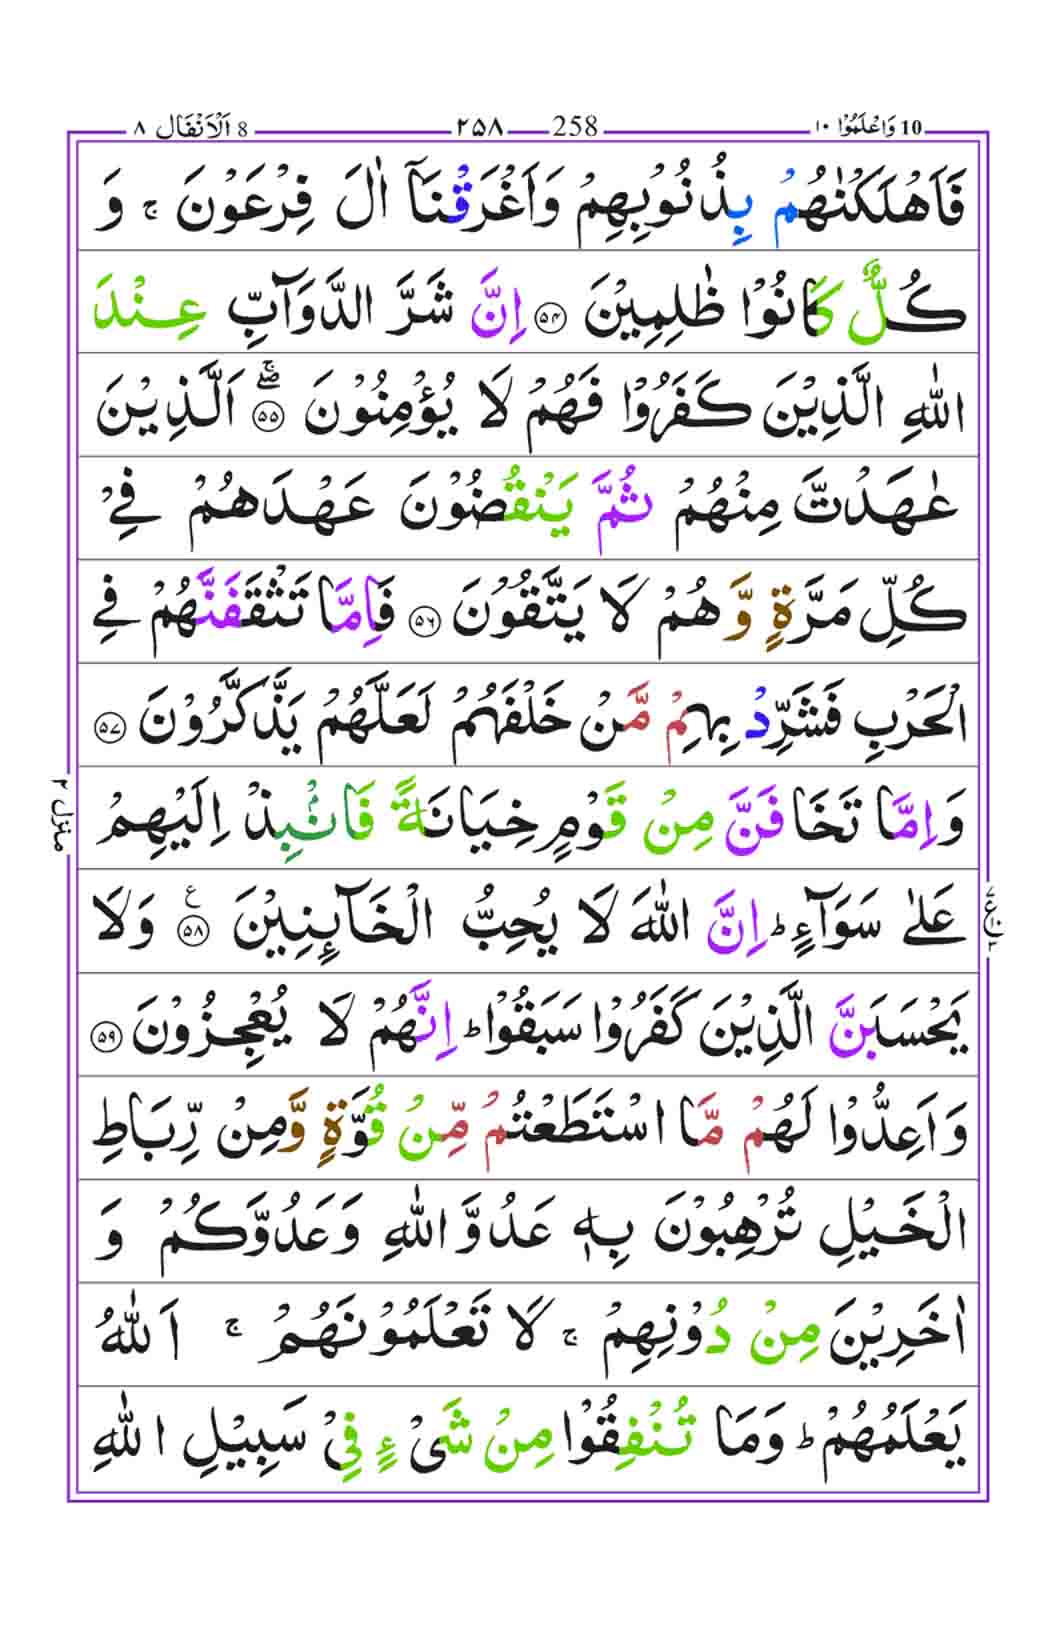 10 وَاعْلَمُوْۤا ۱۰ 258 ۲۵۸ 8 اَلْاَنْفَال ۸
فَاَهْلَكْنٰهُمْ بِذُنُوْبِهِمْ وَاَغْرَقْنَاۤ اٰلَ فِرْعَوْنَ ۚ وَ
كُلٌّ كَانُوْا ظٰلِمِيْنَ ﴿۵۴﴾ اِنَّ شَرَّ الدَّوَآبِّ عِنْدَ
اللّٰهِ الَّذِيْنَ كَفَرُوْا فَهُمْ لَا يُؤْمِنُوْنَ ﴿۵۵﴾ۖۚ اَلَّذِيْنَ
عٰهَدْتَّ مِنْهُمْ ثُمَّ يَنْقُضُوْنَ عَهْدَهُمْ فِيْ
كُلِّ مَرَّةٍ وَّهُمْ لَا يَتَّقُوْنَ ﴿۵۶﴾ فَاِمَّا تَثْقَفَنَّهُمْ فِي
الْحَرْبِ فَشَرِّدْ بِهِمْ مَّنْ خَلْفَهُمْ لَعَلَّهُمْ يَذَّكَّرُوْنَ ﴿۵۷﴾
وَاِمَّا تَخَافَنَّ مِنْ قَوْمٍ خِيَانَةً فَانْۢبِذْ اِلَيْهِمْ
عَلٰى سَوَآءٍ ؕ اِنَّ اللّٰهَ لَا يُحِبُّ الْخَآئِنِيْنَ ﴿۵۸﴾ ع وَلَا
يَحْسَبَنَّ الَّذِيْنَ كَفَرُوْا سَبَقُوْا ؕ اِنَّهُمْ لَا يُعْجِزُوْنَ ﴿۵۹﴾
وَاَعِدُّوْا لَهُمْ مَّا اسْتَطَعْتُمْ مِّنْ قُوَّةٍ وَّمِنْ رِّبَاطِ
الْخَيْلِ تُرْهِبُوْنَ بِهٖ عَدُوَّ اللّٰهِ وَعَدُوَّكُمْ وَ
اٰخَرِيْنَ مِنْ دُوْنِهِمْ ۚ لَا تَعْلَمُوْنَهُمْ ۚ اَللّٰهُ
يَعْلَمُهُمْ ؕ وَمَا تُنْفِقُوْا مِنْ شَيْءٍ فِيْ سَبِيْلِ اللّٰهِ
منزل ۲